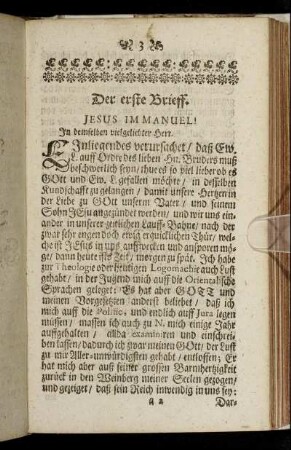 3
Der erste Brieff.
JESUS IMMANUEL!
In demselben vielgeliebter Herr.
EInliegendes verursachet / daß Ew.
L. auff Ordre des lieben Hn. Bruders muß
beschwerlich seyn / thue es so viel lieber ob es
GOtt und Ew. L. gefallen möchte / in desselben
Kundschafft zu gelangen / damit unsere Hertzen in
der Liebe zu GOtt unserm Vater / und seinem
Sohn JEsu angezündet werden / und wir uns ein-
ander in unserer geistlichen Lauff-Bahne / nach der
zwar sehr engen doch ewig erquicklichen Thür / wel-
che ist JEsus in uns auffwecken und anspornen mö-
ge / dann heute ists Zeit / morgen zu spät. Ich habe
zur Theologie oder heutigen Logomachie auch Lust
gehabt / in der Jugend mich auff die Orientalische
Sprachen geleget: Es hat aber GOTT und
meinen Vorgesetzten anderst beliebet / daß ich
mich auff die Politic, und endlich auff Jura legen
müssen / massen ich auch zu N. mich einige Jahr
auffgehalten / allda examiniren und einschrei-
ben lassen / dadurch ich zwar meinen GOtt / der Lust
zu mir Aller-unwürdigsten gehabt / entloffen; Er
hat mich aber auß seiner grossen Barmhertzigkeit
zurück in den Weinberg meiner Seelen gezogen /
und gezeiget / daß sein Reich inwendig in uns sey:
a 2 Dar-